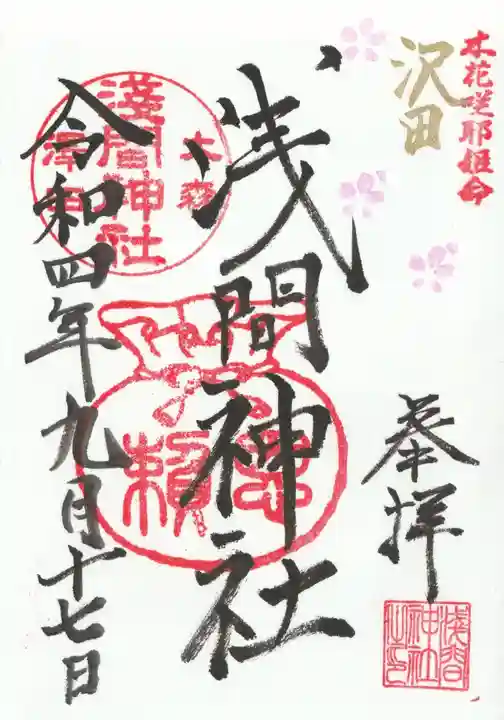 木花咲耶姫命
沢田
奉拝
浅間神社
令和四年九月十七日
大森
淺間神社
澤田
浅間
神社
之印